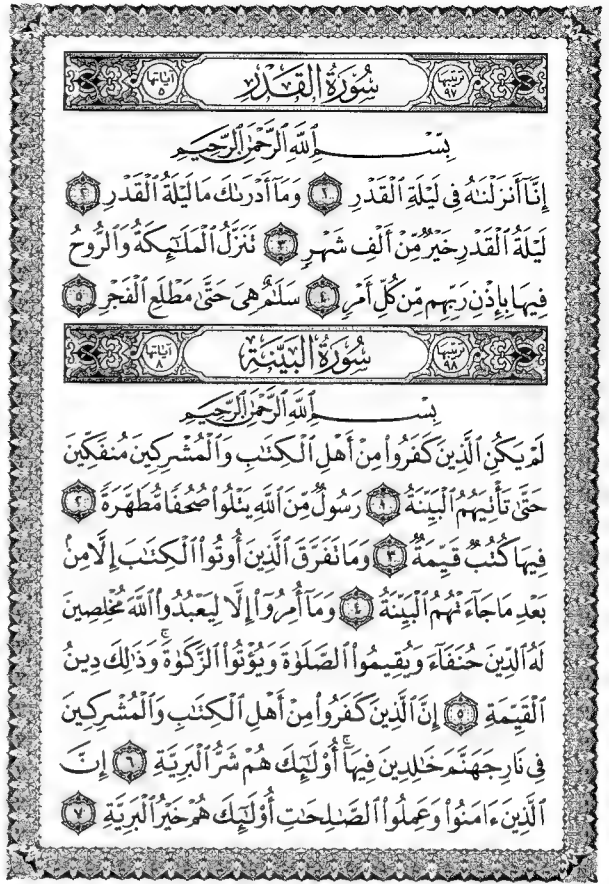 ترتيبها ٩٧ سُورَةُ القَدْرِ آياتها ٥
بِسْمِ اللَّهِ الرَّحْمَٰنِ الرَّحِيمِ
إِنَّا أَنزَلْنَٰهُ فِي لَيْلَةِ الْقَدْرِ ١ وَمَا أَدْرَىٰكَ مَا لَيْلَةُ الْقَدْرِ ٢
لَيْلَةُ الْقَدْرِ خَيْرٌ مِّنْ أَلْفِ شَهْرٍ ٣ تَنَزَّلُ الْمَلَٰٓئِكَةُ وَالرُّوحُ
فِيهَا بِإِذْنِ رَبِّهِم مِّن كُلِّ أَمْرٍ ٤ سَلَٰمٌ هِيَ حَتَّىٰ مَطْلَعِ الْفَجْرِ ٥
ترتيبها ٩٨ سُورَةُ البَيِّنَةِ آياتها ٨
بِسْمِ اللَّهِ الرَّحْمَٰنِ الرَّحِيمِ
لَمْ يَكُنِ الَّذِينَ كَفَرُوا۟ مِنْ أَهْلِ الْكِتَٰبِ وَالْمُشْرِكِينَ مُنفَكِّينَ
حَتَّىٰ تَأْتِيَهُمُ الْبَيِّنَةُ ١ رَسُولٌ مِّنَ اللَّهِ يَتْلُوا۟ صُحُفًا مُّطَهَّرَةً ٢
فِيهَا كُتُبٌ قَيِّمَةٌ ٣ وَمَا تَفَرَّقَ الَّذِينَ أُوتُوا۟ الْكِتَٰبَ إِلَّا مِنۢ
بَعْدِ مَا جَآءَتْهُمُ الْبَيِّنَةُ ٤ وَمَآ أُمِرُوٓا۟ إِلَّا لِيَعْبُدُوا۟ اللَّهَ مُخْلِصِينَ
لَهُ الدِّينَ حُنَفَآءَ وَيُقِيمُوا۟ الصَّلَوٰةَ وَيُؤْتُوا۟ الزَّكَوٰةَ ۚ وَذَٰلِكَ دِينُ
الْقَيِّمَةِ ٥ إِنَّ الَّذِينَ كَفَرُوا۟ مِنْ أَهْلِ الْكِتَٰبِ وَالْمُشْرِكِينَ
فِي نَارِ جَهَنَّمَ خَٰلِدِينَ فِيهَآ ۚ أُو۟لَٰٓئِكَ هُمْ شَرُّ الْبَرِيَّةِ ٦ إِنَّ
الَّذِينَ ءَامَنُوا۟ وَعَمِلُوا۟ الصَّٰلِحَٰتِ أُو۟لَٰٓئِكَ هُمْ خَيْرُ الْبَرِيَّةِ ٧